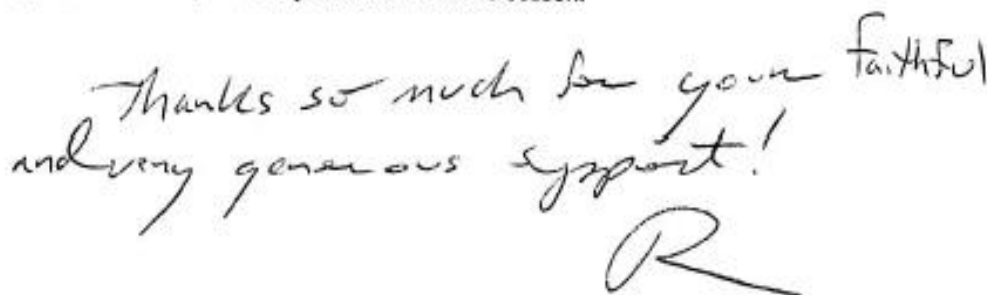 Thanks so much for your faithful
and very generous support!
R